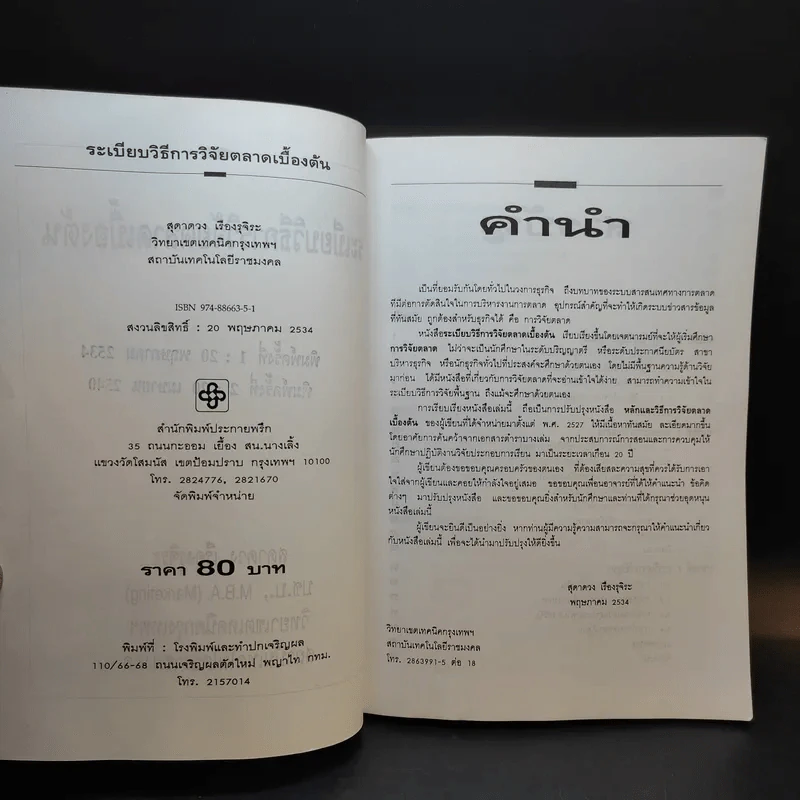 ระเบียบวิธีการวิจัยตลาดเบื้องต้น
สุดาดวง เรืองรุจิระ
วิทยาเขตเทคนิคกรุงเทพฯ
สถาบันเทคโนโลยีราชมงคล
ISBN 974-88663-5-1
สงวนลิขสิทธิ์ : 20 พฤษภาคม 2534
สำนักพิมพ์ประกายพรึก
35 ถนนกะออม เยื้อง สน.นางเลิ้ง
แขวงวัดโสมนัส เขตป้อมปราบ กรุงเทพฯ 10100
โทร. 2824776, 2821670
จัดพิมพ์จำหน่าย
ราคา 80 บาท
พิมพ์ที่ : โรงพิมพ์และทำปกเจริญผล
110/66-68 ถนนเจริญผลตัดใหม่ พญาไท กทม.
โทร. 2157014
คำนำ
เป็นที่ยอมรับกันโดยทั่วไปในวงการธุรกิจ ถึงบทบาทของระบบสารสนเทศทางการตลาด
ที่มีต่อการตัดสินใจในการบริหารงานการตลาด อุปกรณ์สำคัญที่จะทำให้เกิดระบบข่าวสารข้อมูล
ที่ทันสมัย ถูกต้องสำหรับธุรกิจได้ คือ การวิจัยตลาด
หนังสือระเบียบวิธีการวิจัยตลาดเบื้องต้น เรียบเรียงขึ้นโดยเจตนารมย์ที่จะให้ผู้เริ่มศึกษา
การวิจัยตลาด ไม่ว่าจะเป็นนักศึกษาในระดับปริญญาตรี หรือระดับประกาศนียบัตร สาขา
บริหารธุรกิจ หรือนักธุรกิจทั่วไปที่ประสงค์จะศึกษาด้วยตนเอง โดยไม่มีพื้นฐานความรู้ด้านวิจัย
มาก่อน ได้มีหนังสือที่เกี่ยวกับการวิจัยตลาดที่จะอ่านเข้าใจได้ง่าย สามารถทำความเข้าใจใน
ระเบียบวิธีการวิจัยพื้นฐาน ถึงแม้จะศึกษาด้วยตนเอง
การเรียบเรียงหนังสือเล่มนี้ ถือเป็นการปรับปรุงหนังสือ หลักและวิธีการวิจัยตลาด
เบื้องต้น ของผู้เขียนที่ได้จำหน่ายมาตั้งแต่ พ.ศ. 2527 ให้มีเนื้อหาทันสมัย ละเอียดมากขึ้น
โดยอาศัยการค้นคว้าจากเอกสารตำราบางเล่ม จากประสบการณ์การสอนและการควบคุมให้
นักศึกษาปฏิบัติงานวิจัยประกอบการเรียน มาเป็นระยะเวลาเกือบ 20 ปี
ผู้เขียนต้องขอขอบคุณครอบครัวของตนเอง ที่ต้องเสียสละความสุขที่ควรได้รับการเอา
ใจใส่จากผู้เขียนและคอยให้กำลังใจอยู่เสมอ ขอขอบคุณเพื่อนอาจารย์ที่ได้ให้คำแนะนำ ข้อคิด
ต่างๆ มาปรับปรุงหนังสือ และขอขอบคุณยิ่งสำหรับนักศึกษาและท่านที่ได้กรุณาช่วยอุดหนุน
หนังสือเล่มนี้
ผู้เขียนจะยินดีเป็นอย่างยิ่ง หากท่านผู้มีความรู้ความสามารถจะกรุณาให้คำแนะนำเกี่ยว
กับหนังสือเล่มนี้ เพื่อจะได้นำมาปรับปรุงให้ดียิ่งขึ้น
สุดาดวง เรืองรุจิระ
พฤษภาคม 2534
วิทยาเขตเทคนิคกรุงเทพฯ
สถาบันเทคโนโลยีราชมงคล
โทร. 2863991-5 ต่อ 18